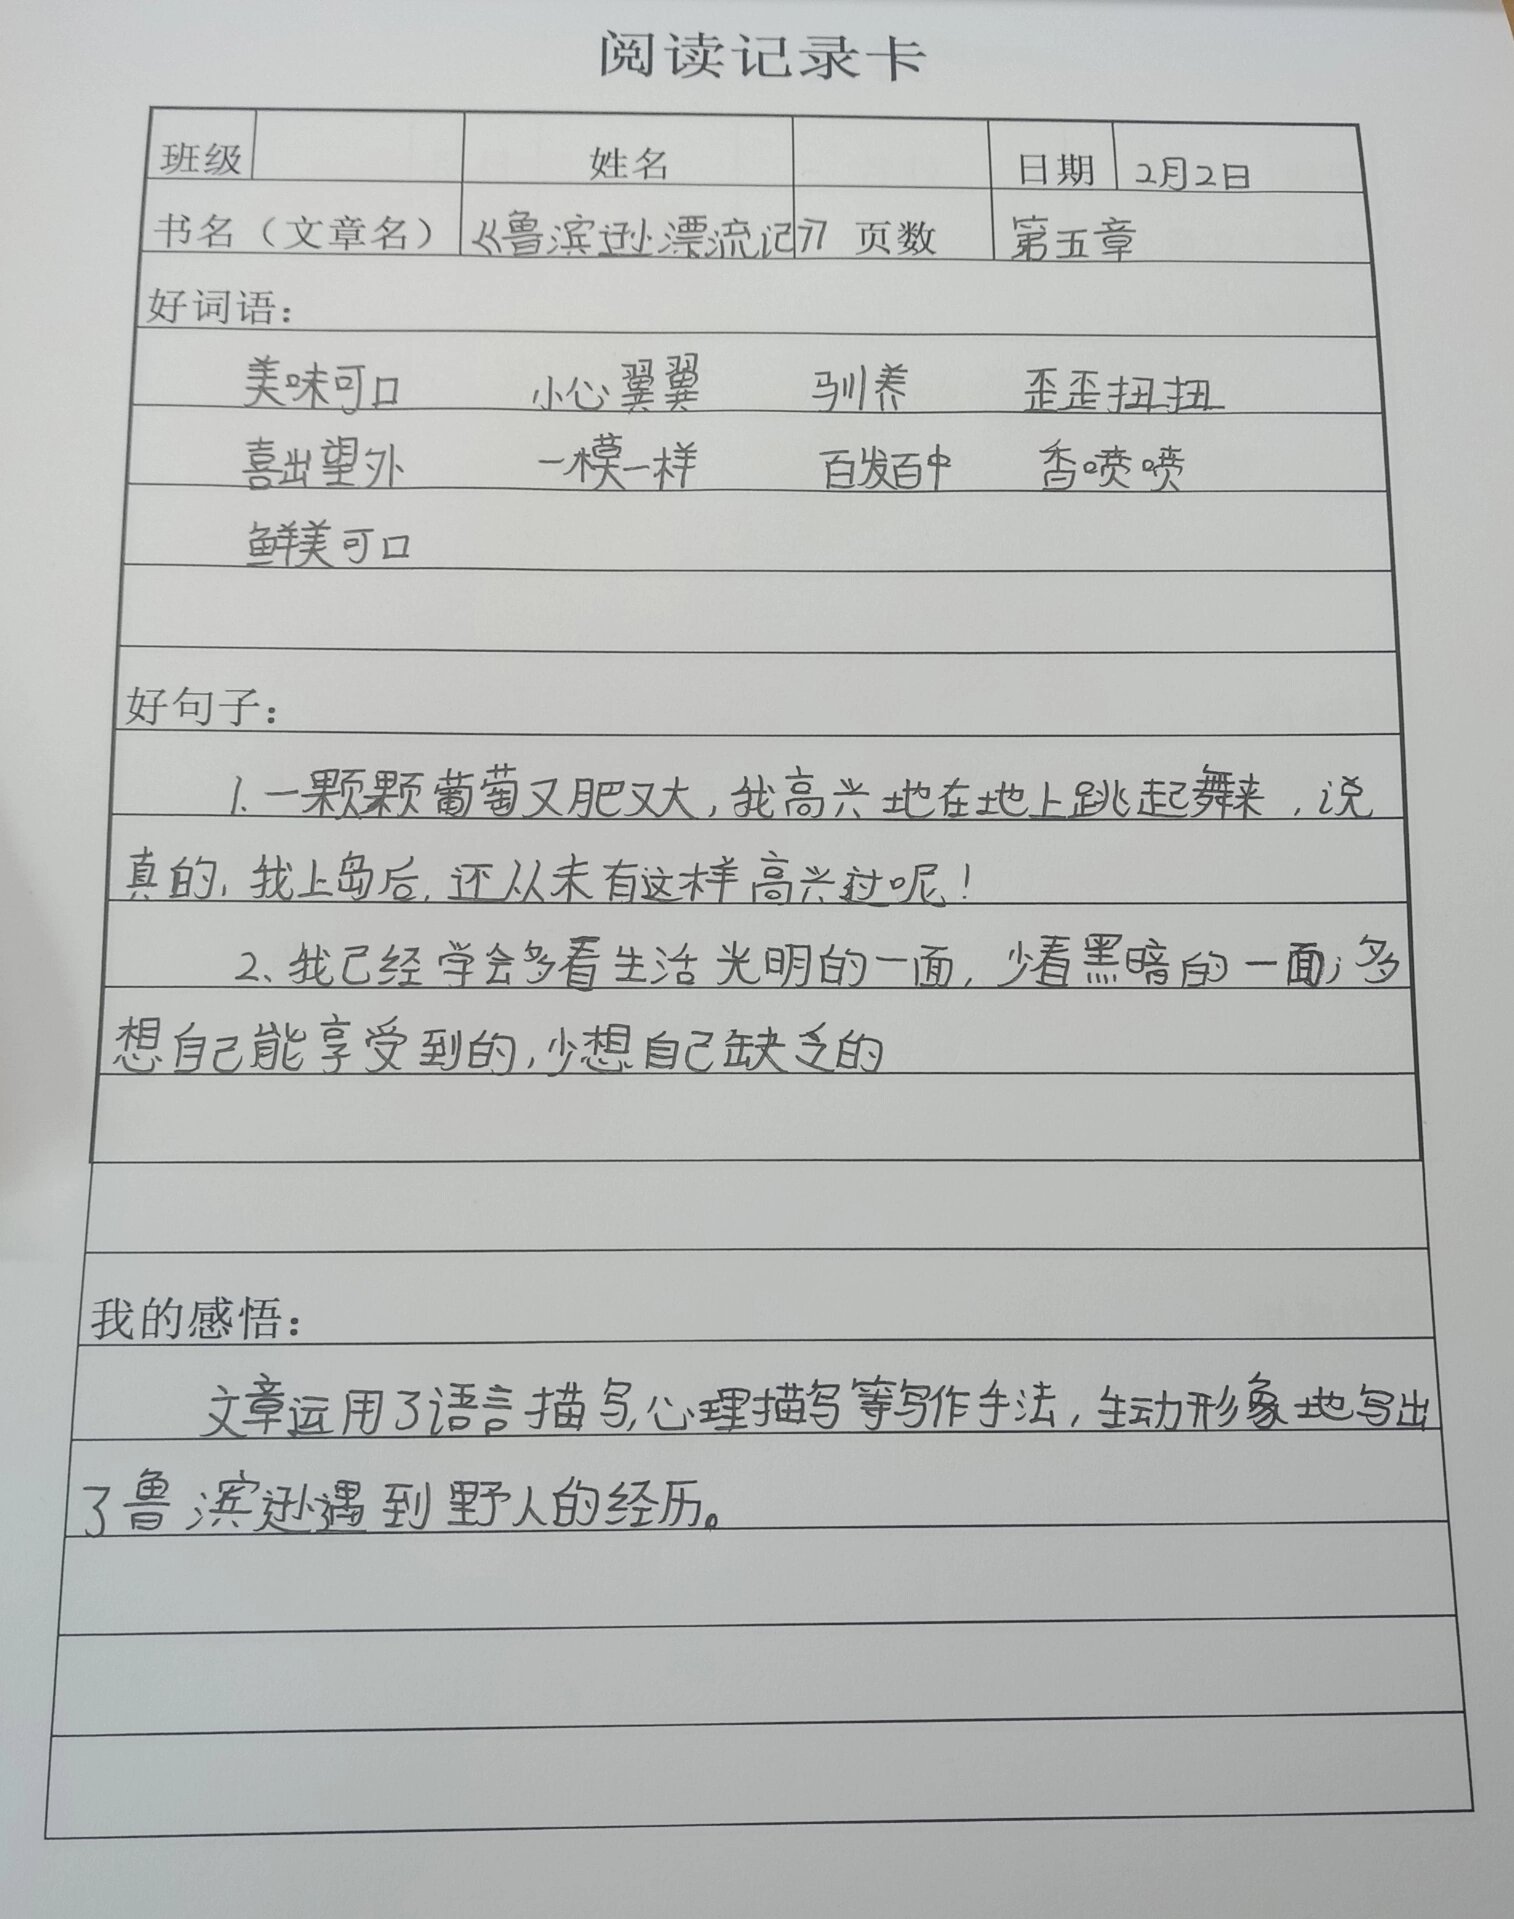 阅读记录卡
班级 姓名 日期 2月2日
书名（文章名） 《鲁滨逊漂流记》 页数 第五章
好词语：
美味可口 小心翼翼 驯养 歪歪扭扭
喜出望外 一模一样 百发百中 香喷喷
鲜美可口
好句子：
1.一颗颗葡萄又肥又大，我高兴地在地上跳起舞来，说
真的，我上岛后，还从未有这样高兴过呢！
2、我已经学会多看生活光明的一面，少看黑暗的一面；多
想自己能享受到的，少想自己缺乏的
我的感悟：
文章运用了语言描写，心理描写等写作手法，生动形象地写出
了鲁滨逊遇到野人的经历。